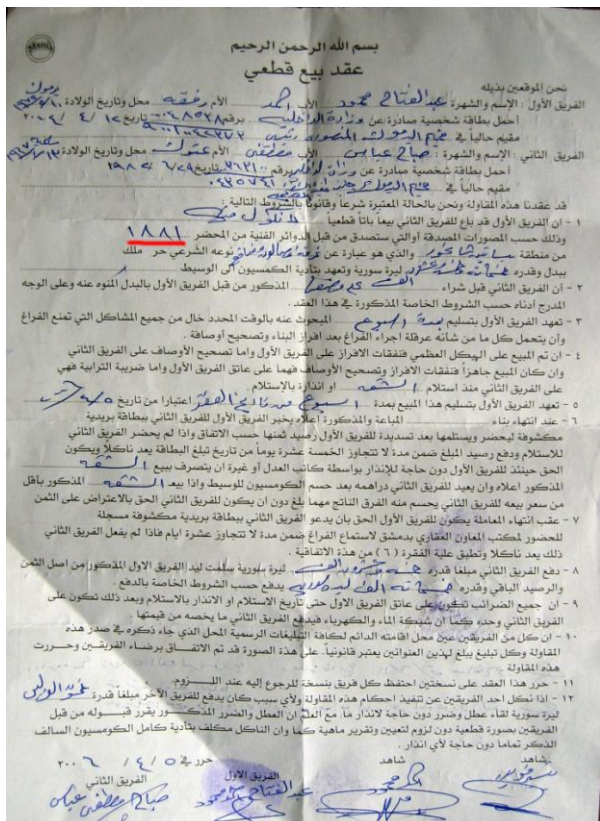 بسم الله الرحمن الرحيم
عقد بيع قطعي
نحن الموقعين بذيله
الفريق الأول : الإسم والشهرة : عبد الفتاح محمود الأب احمد الأم رفيقه محل وتاريخ الولادة
احمل بطاقة شخصية صادرة عن وزارة الداخلية برقم تاريخ
مقيم حالياً في
الفريق الثاني : الإسم والشهرة : صباح عباس الأب مصطفى الأم محل وتاريخ الولادة
احمل بطاقة شخصية صادرة عن برقم تاريخ
مقيم حالياً في
قد عقدنا هذه المقاولة ونحن بالحالة المعتبرة شرعاً وقانوناً بالشروط التالية :
١ - ان الفريق الأول قد باع للفريق الثاني بيعاً باتاً قطعياً
وذلك حسب المصورات المصدقة أوالتي ستصدق من قبل الدوائر الفنية من المحضر ١٨٨١
من منطقة والذي هو عبارة عن نوعه الشرعي حر ملك
ببدل وقدره ليرة سورية وتعهد بتأدية الكمسيون الى الوسيط
٢ - أن الفريق الثاني قبل شراء المذكور من قبل الفريق الأول بالبدل المنوه عنه وعلى الوجه
المدرج أدناه حسب الشروط الخاصة المذكورة في هذا العقد .
٣ - تعهد الفريق الأول بتسليم المبحوث عنه بالوقت المحدد خال من جميع المشاكل التي تمنع الفراغ
وأن يتحمل كل ما من شأنه عرقلة اجراء الفراغ بعد افراز البناء وتصحيح أوصافة .
٤ - ان تم المبيع على الهيكل العظمي فنفقات الافراز على الفريق الأول واما تصحيح الأوصاف على الفريق الثاني
وان كان المبيع جاهزاً فنفقات الافراز وتصحيح الأوصاف فهما على عاتق الفريق الأول واما ضريبة الترابية فهي
على الفريق الثاني منذ استلام الشقه او انذارة بالإستلام .
٥ - تعهد الفريق الأول بتسليم هذا المبيع بمدة اسبوع من تاريخ العقد اعتبارا من تاريخ
٦ - عند انتهاء بناء المباعة والمذكورة اعلاه يخبر الفريق الأول للفريق الثاني ببطاقة بريدية
مكشوفة ليحضر ويستلمها بعد تسديدة للفريق الأول رصيد ثمنها حسب الاتفاق واذا لم يحضر الفريق الثاني
للاستلام ودفع رصيد المبلغ ضمن مدة لا تتجاوز الخمسة عشرة يوماً من تاريخ تبلغ البطاقة يعد ناكلاً ويكون
الحق حينئذ للفريق الأول دون حاجة للإنذار بواسطة كاتب العدل أو غيرة ان يتصرف ببيع الشقه
المذكور اعلاه وان يعيد للفريق الثاني دراهمه بعد حسم الكومسيون للوسيط واذا بيع الشقه المذكور بأقل
من سعر بيعه للفريق الثاني يحسم منه الفرق الناتج مهما بلغ دون ان يكون للفريق الثاني الحق بالاعتراض على الثمن
٧ - عقب انتهاء المعاملة يكون للفريق الأول الحق بان يدعو الفريق الثاني ببطاقة بريدية مكشوفة مسجلة
للحضور لمكتب المعاون العقاري بدمشق لاستماع الفراغ ضمن مدة لا تتجاوز عشرة ايام فاذا لم يفعل الفريق الثاني
ذلك يعد ناكلاً وتطبق علية الفقرة ( ٦ ) من هذه الاتفاقية .
٨ - دفع الفريق الثاني مبلغا قدره ليرة سورية سلمت ليد الفريق الاول المذكور من اصل الثمن
والرصيد الباقي وقدره يدفع حسب الشروط الخاصة بالدفع .
٩ - ان جميع الضرائب تكون على عاتق الفريق الاول حتى تاريخ الاستلام او الانذار بالاستلام وبعد ذلك تكون على
الفريق الثاني وحده كما ان شبكة الماء والكهرباء فيدفع الفريق الثاني ما يخصه من قيمتها .
١٠ - ان كل من الفريقين عين محل اقامته الدائم لكافة التبليغات الرسمية المحل الذي جاء ذكره في صدر هذه
المقاولة وكل تبليغ يبلغ لهذين العنوانين يعتبر قانونياً. على هذة الصورة قد تم الاتفاق برضاء الفريقين وحررت
هذه المقاولة
١١ - حرر هذا العقد على نسختين احتفظ كل فريق بنسخة للرجوع إليه عند اللزوم.
١٢ - اذا نكل احد الفريقين عن تنفيذ احكام هذه المقاولة ولأي سبب كان يدفع للفريق الآخر مبلغا قدرة
ليرة سورية لقاء عطل وضرر دون حاجة لانذار ما. مع العلم ان العطل والضرر المذكور يقرر قبوله من قبل
الفريقين بصورة قطعية دون لزوم لتعيين وتقرير ماهية كما وان الناكل مكلف بتأدية كامل الكومسيون السالف
الذكر تماما دون حاجة لأي انذار .
حرر في ٥ / ٤ / ٢٠٠٦
شاهد شاهد الفريق الأول الفريق الثاني
عبد الفتاح احمد محمود صباح مصطفى عباس